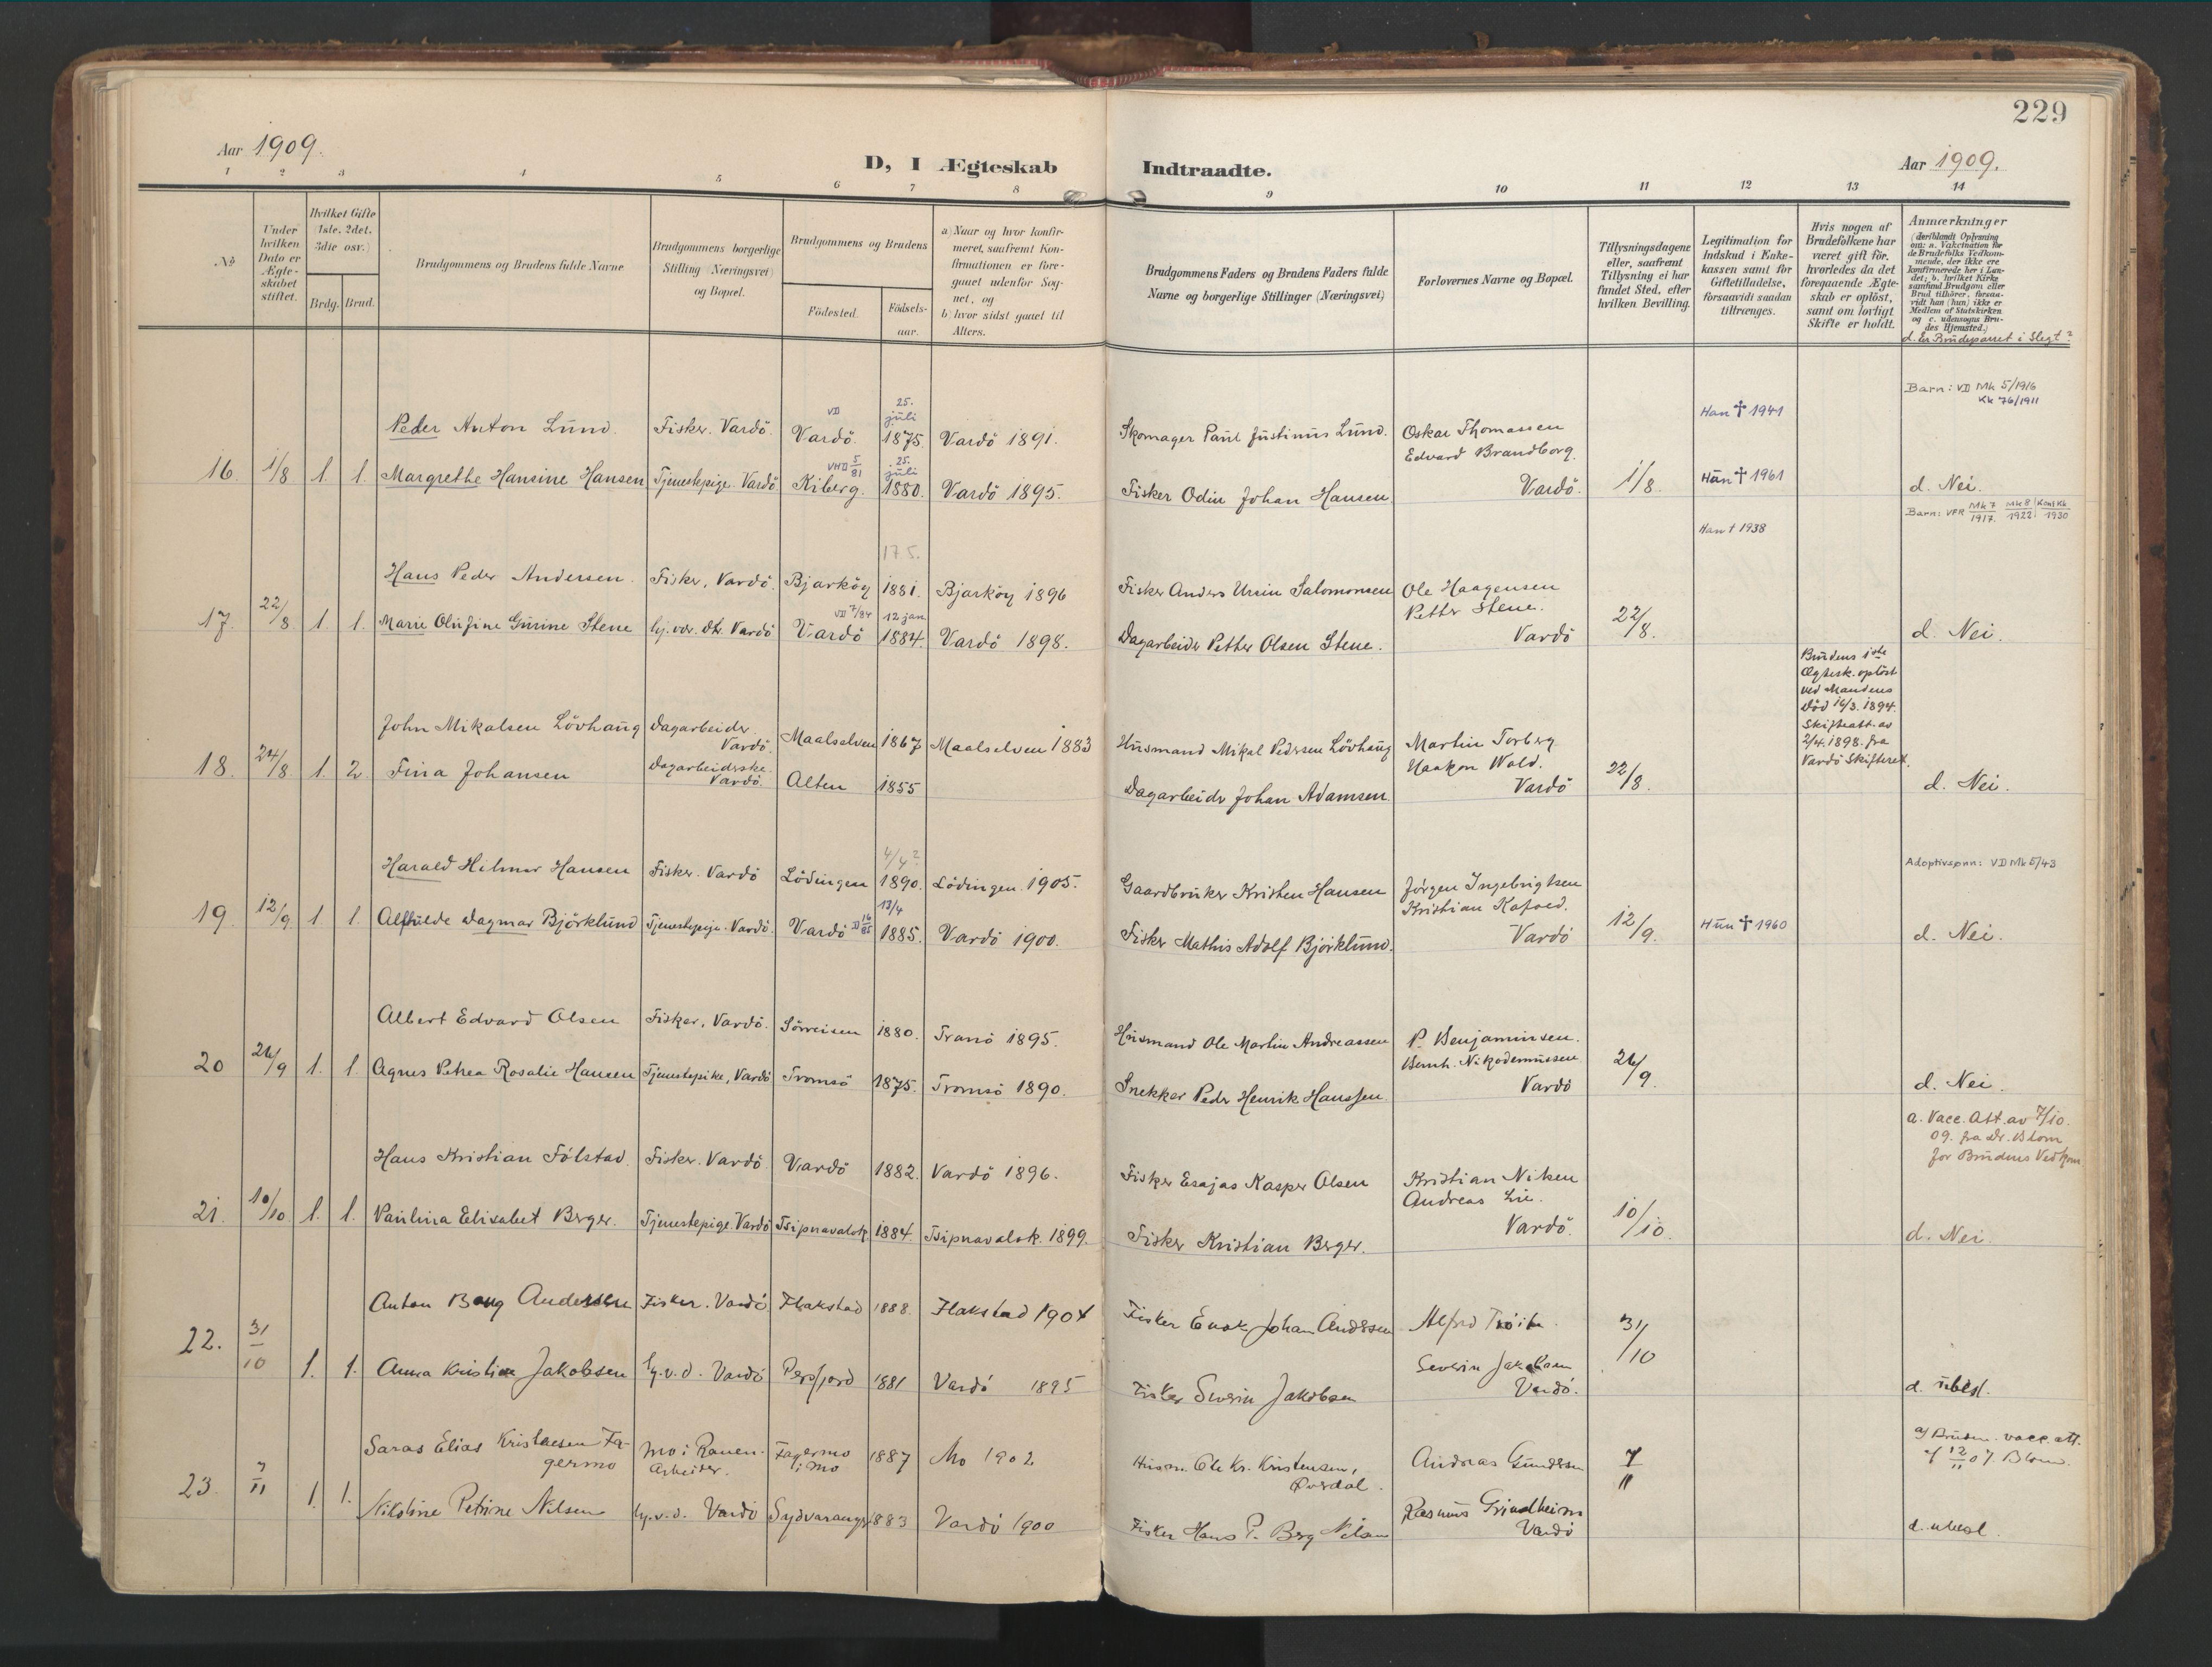 229
Aar 1909.
D, I Ægteskab Indtraadte.
Aar 1909.
1 2 3 4 5 6 7 8 9 10 11 12 13 14
No
Under
hvilken
Dato er
Ægte-
skabet
stiftet.
Hvilket Gifte
(1ste. 2det.
3die osv.)
Brdg. Brud.
Brudgommens og Brudens fulde Navne
Brudgommens borgerlige
Stilling (Næringsvei)
og Bopæl.
Brudgommens og Brudens
Födested.
Födsels-
aar.
a) Naar og hvor konfir-
meret, saafremt Kon-
firmationen er fore-
gaaet udenfor Sog-
net, og
b) hvor sidst gaaet til
Alters.
Brudgommens Faders og Brudens Faders fulde
Navne og borgerlige Stillinger (Næringsvei)
Forlovernes Navne og Bopæl.
Tillysningsdagene
eller, saafremt
Tillysning ei har
fundet Sted, efter
hvilken Bevilling.
Legitimation for
Indskud i Enke-
kassen samt for
Giftetilladelse,
forsaavidt saadan
tiltrænges.
Hvis nogen af
Brudefolkene har
været gift för,
hvorledes da det
foregaaende Ægte-
skab er oplöst,
samt om lovligt
Skifte er holdt.
Anmærkninger
(deriblandt Oplysning
om: a. Vakcination for
de Brudefolks Vedkom-
mende, der ikke ere
konfirmerede her i Lan-
det; b. hvilket Kirke
samfund Brudgom eller
Brud tilhörer, forsaa-
vidt han (hun) ikke er
Medlem af Statskirken
og c. udensogns Bru-
des Hjemsted.)
d. Er Brudeparret i Slegt?
Barn: VD Mk 5/1916
Kk 76/1911
25.
juli
VD
Han † 1941
Peder Anton Lund. Fisker. Vardö. Vardö. 1875. Vardö 1891. Skomager Paul Justinus Lund. Oskar Thomassen
Edvard Brandborg.
VHD 5/81 25. juli
16. 1/8 1. 1. Margrethe Hansine Hansen Tjenestepige. Vardö Kiberg. 1880. Vardö 1895. Fisker Odin Johan Hansen. Vardö. 1/8. Hun † 1961 d. Nei.
Barn: VFR Mk 7/1917. Mk 8/1922 Konf Kk/1930
Han † 1938
17.5.
Hans Peder Andersen. Fisker, Vardö. Bjarköy 1881. Bjarköy 1896 Fisker Anders Ursin Salomonsen Ole Haagensen
Petter Stene.
VD 7/84 12 jan
17. 22/8 1. 1. Marie Olufine Gurine Stene hj.vær. dtr. Vardö Vardö 1884. Vardö 1898. Dagarbeider Petter Olsen Stene. Vardö 22/8. d. Nei.
Brudens 1ste
Ægtesk. oplöst
ved Mandens
död 16/3. 1894.
Skifteatt. av
2/4. 1898. fra
Vardö Skifteret.
John Mikalsen Lövhaug Dagarbeider
Vardö. Maalselven 1867 Maalselven 1883 Husmand Mikal Pedersen Lövhaug Martin Torberg.
Haakon Wold.
18. 24/8. 1. 2. Fina Johansen Dagarbeiderske.
Vardö. Alten 1855 Dagarbeider Johan Adamsen. Vardö 22/8. d. Nei.
4/4?
Adoptivsønn: VD Mk 5/43
Harald Hilmar Hansen Fisker. Vardö Lödingen 1890. Lödingen. 1905. Gaardbruker Kristen Hansen Jørgen Ingebrigtsen
Kristian Kafoed.
13/4
19. 12/9 1. 1. Alfhilde Dagmar Björklund Tjenestepige. Vardö. Vardö D 16/85 1885. Vardö 1900. Fisker Mathis Adolf Björklund. Vardö 12/9. Hun † 1960 d. Nei.
Albert Edvard Olsen Fisker, Vardö. Sörreisen 1880. Tranö 1895. Husmand Ole Martin Andreassen P. Benjaminsen.
Bernh. Nikodemussen
20 26/9 1. 1 Agnes Petrea Rosalie Hansen Tjenestepike, Vardö Tromsö 1875. Tromsö 1890. Snekker Peder Henrik Hanssen. Vardö 26/9. d. Nei.
a. Vacc. Att. av 7/10.
09. fra Dr. Blom
for Brudens Vedkom.
Hans Kristian Fölstad. Fisker. Vardö Vardö 1882. Vardö 1896. Fisker Esajas Kasper Olsen Kristian Nilsen
Andreas Lie.
21. 10/10. 1. 1. Paulina Elisabet Berger. Tjenestepige. Vardö Tsipnavalok 1884. Tsipnavalok. 1899. Fisker Kristian Berger. Vardö. 10/10. d. Nei.
Anton Andersen Fisker. Vardö Flakstad 1888. Flakstad 1904 Fisker Johan Alfred 31/10
22. 31/10 1. 1. Anna Kristine Jakobsen hj.v.d. Vardö Persfjord 1881 Vardö 1895 Fisker Severin Jakobsen Severin Jakobsen
Vardö. d. ubesl.
Saras Elias Kristensen Fa-
germo Mo i Ranen.
Arbeider. Fagermo
i Mo 1887 Mo 1902 Husm. Ole Kr. Kristensen, Andreas Gundersen 7/11
a) Bruden vacc. att.
af 12/11 07. Blom.
23. 7/11 1. 1. Nikoline Petrine Nilsen hj.v.d. Vardö Sydvaranger 1883 Vardö 1900 Fisker Hans P. Berg Nilsen Rasmus Grindheim
Vardö d. ubesl.